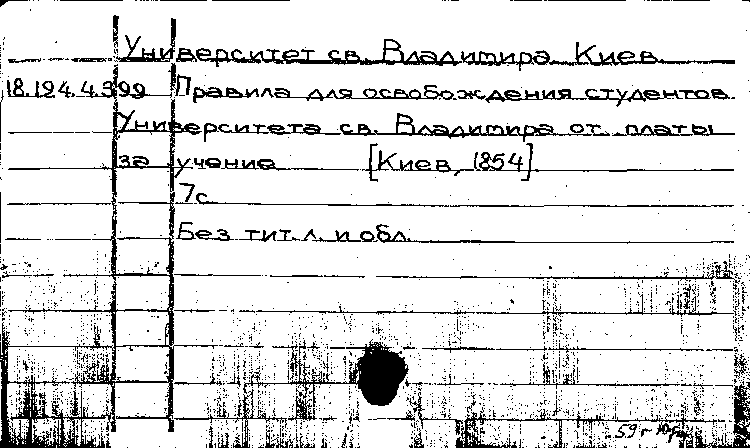 Университет св. Владимира. Киев.
18.194.4.399 Правила для освобождения студентов
Университета св. Владимира от платы
за учение [Киев, 1854].
7с.
Без тит. л. и обл.
59г